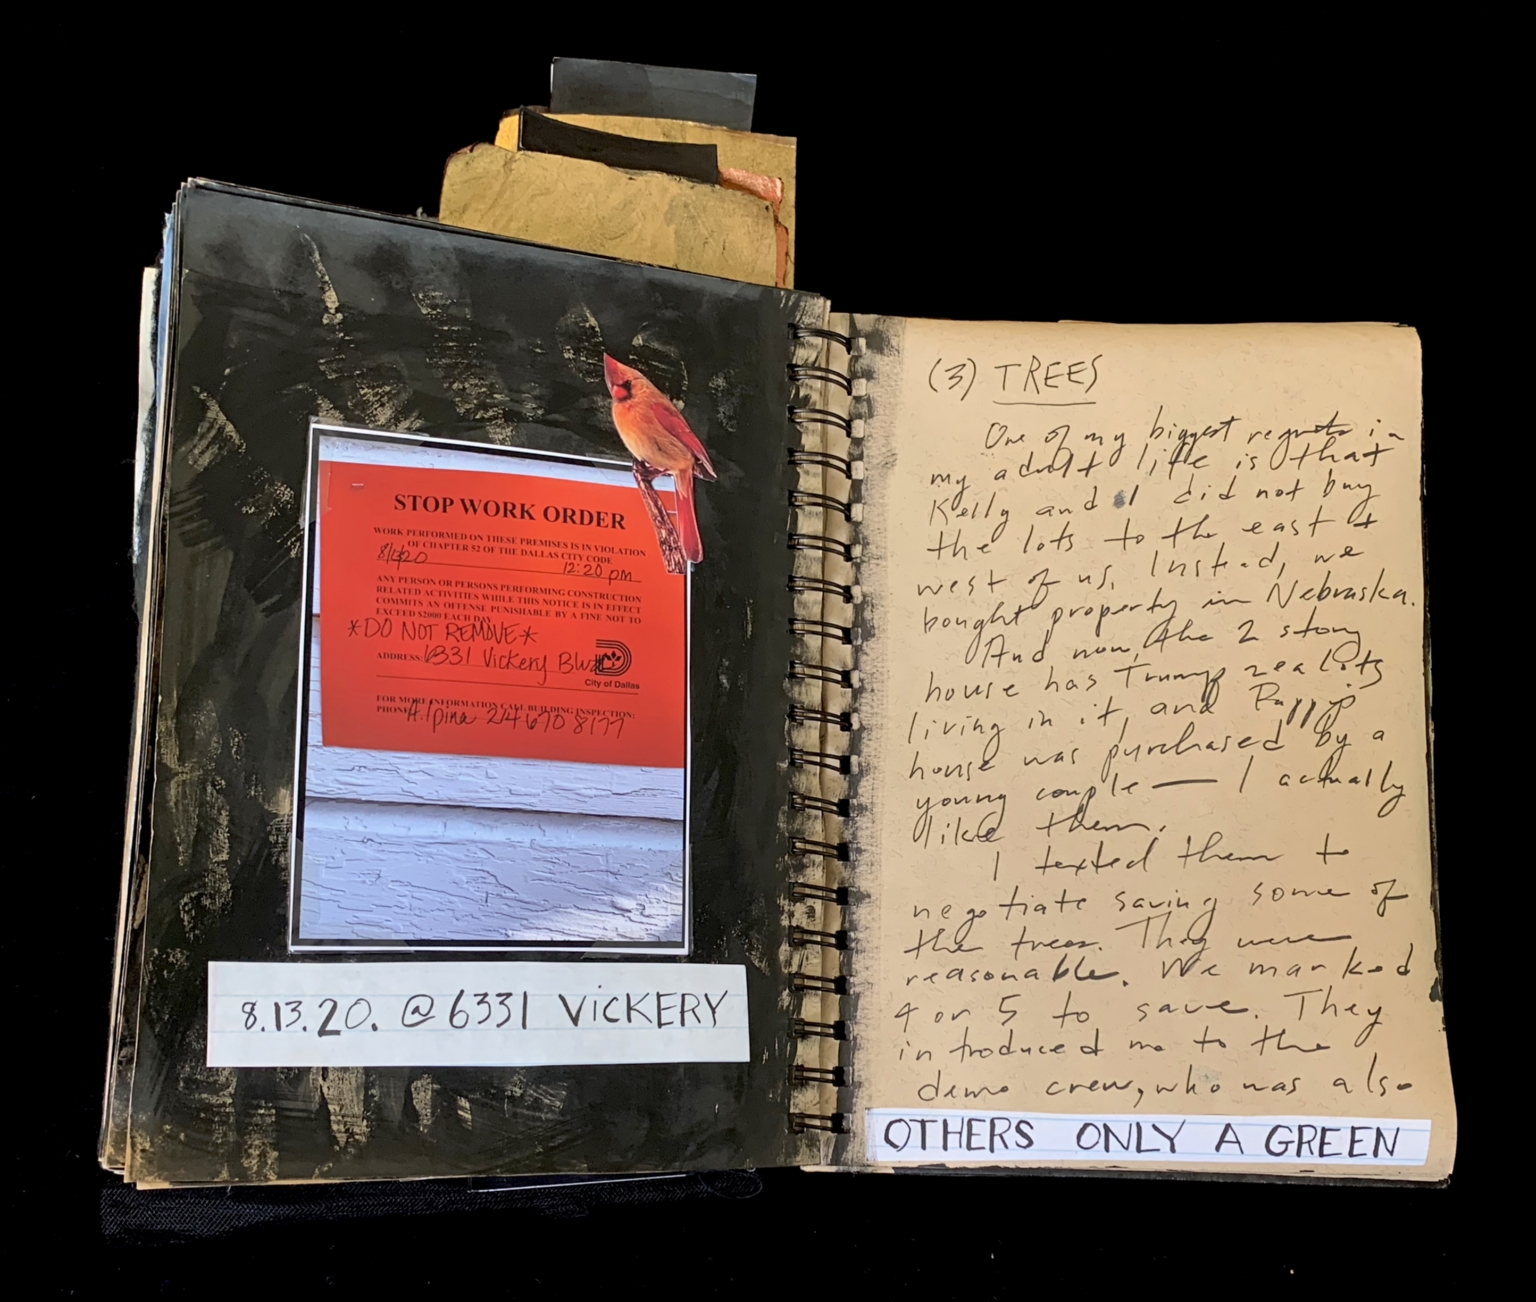 STOP WORK ORDER
WORK PERFORMED ON THESE PREMISES IS IN VIOLATION
OF CHAPTER 52 OF THE DALLAS CITY CODE
12:20 pm
ANY PERSON OR PERSONS PERFORMING CONSTRUCTION
RELATED ACTIVITIES WHILE THIS NOTICE IS IN EFFECT
COMMITS AN OFFENSE PUNISHABLE BY A FINE NOT TO
EXCEED $2000 EACH DAY
*DO NOT REMOVE*
ADDRESS: 6331 Vickery Blvd
City of Dallas
FOR MORE INFORMATION CALL BUILDING INSPECTION:
PHONE: 214 670 8177
8.13.20. @ 6331 ViCKERY
(3) TREES
One of my biggest regrets in
my adult life is that
Kelly and I did not buy
the lots to the east +
west of us. Instead, we
bought property in Nebraska.
And now, the 2 story
house has Trump zealots
living in it, and
house was purchased by a
young couple — I actually
like them.
I texted them to
negotiate saving some of
the trees. They were
reasonable. We marked
4 or 5 to save. They
introduced me to the
demo crew, who was also
OTHERS ONLY A GREEN